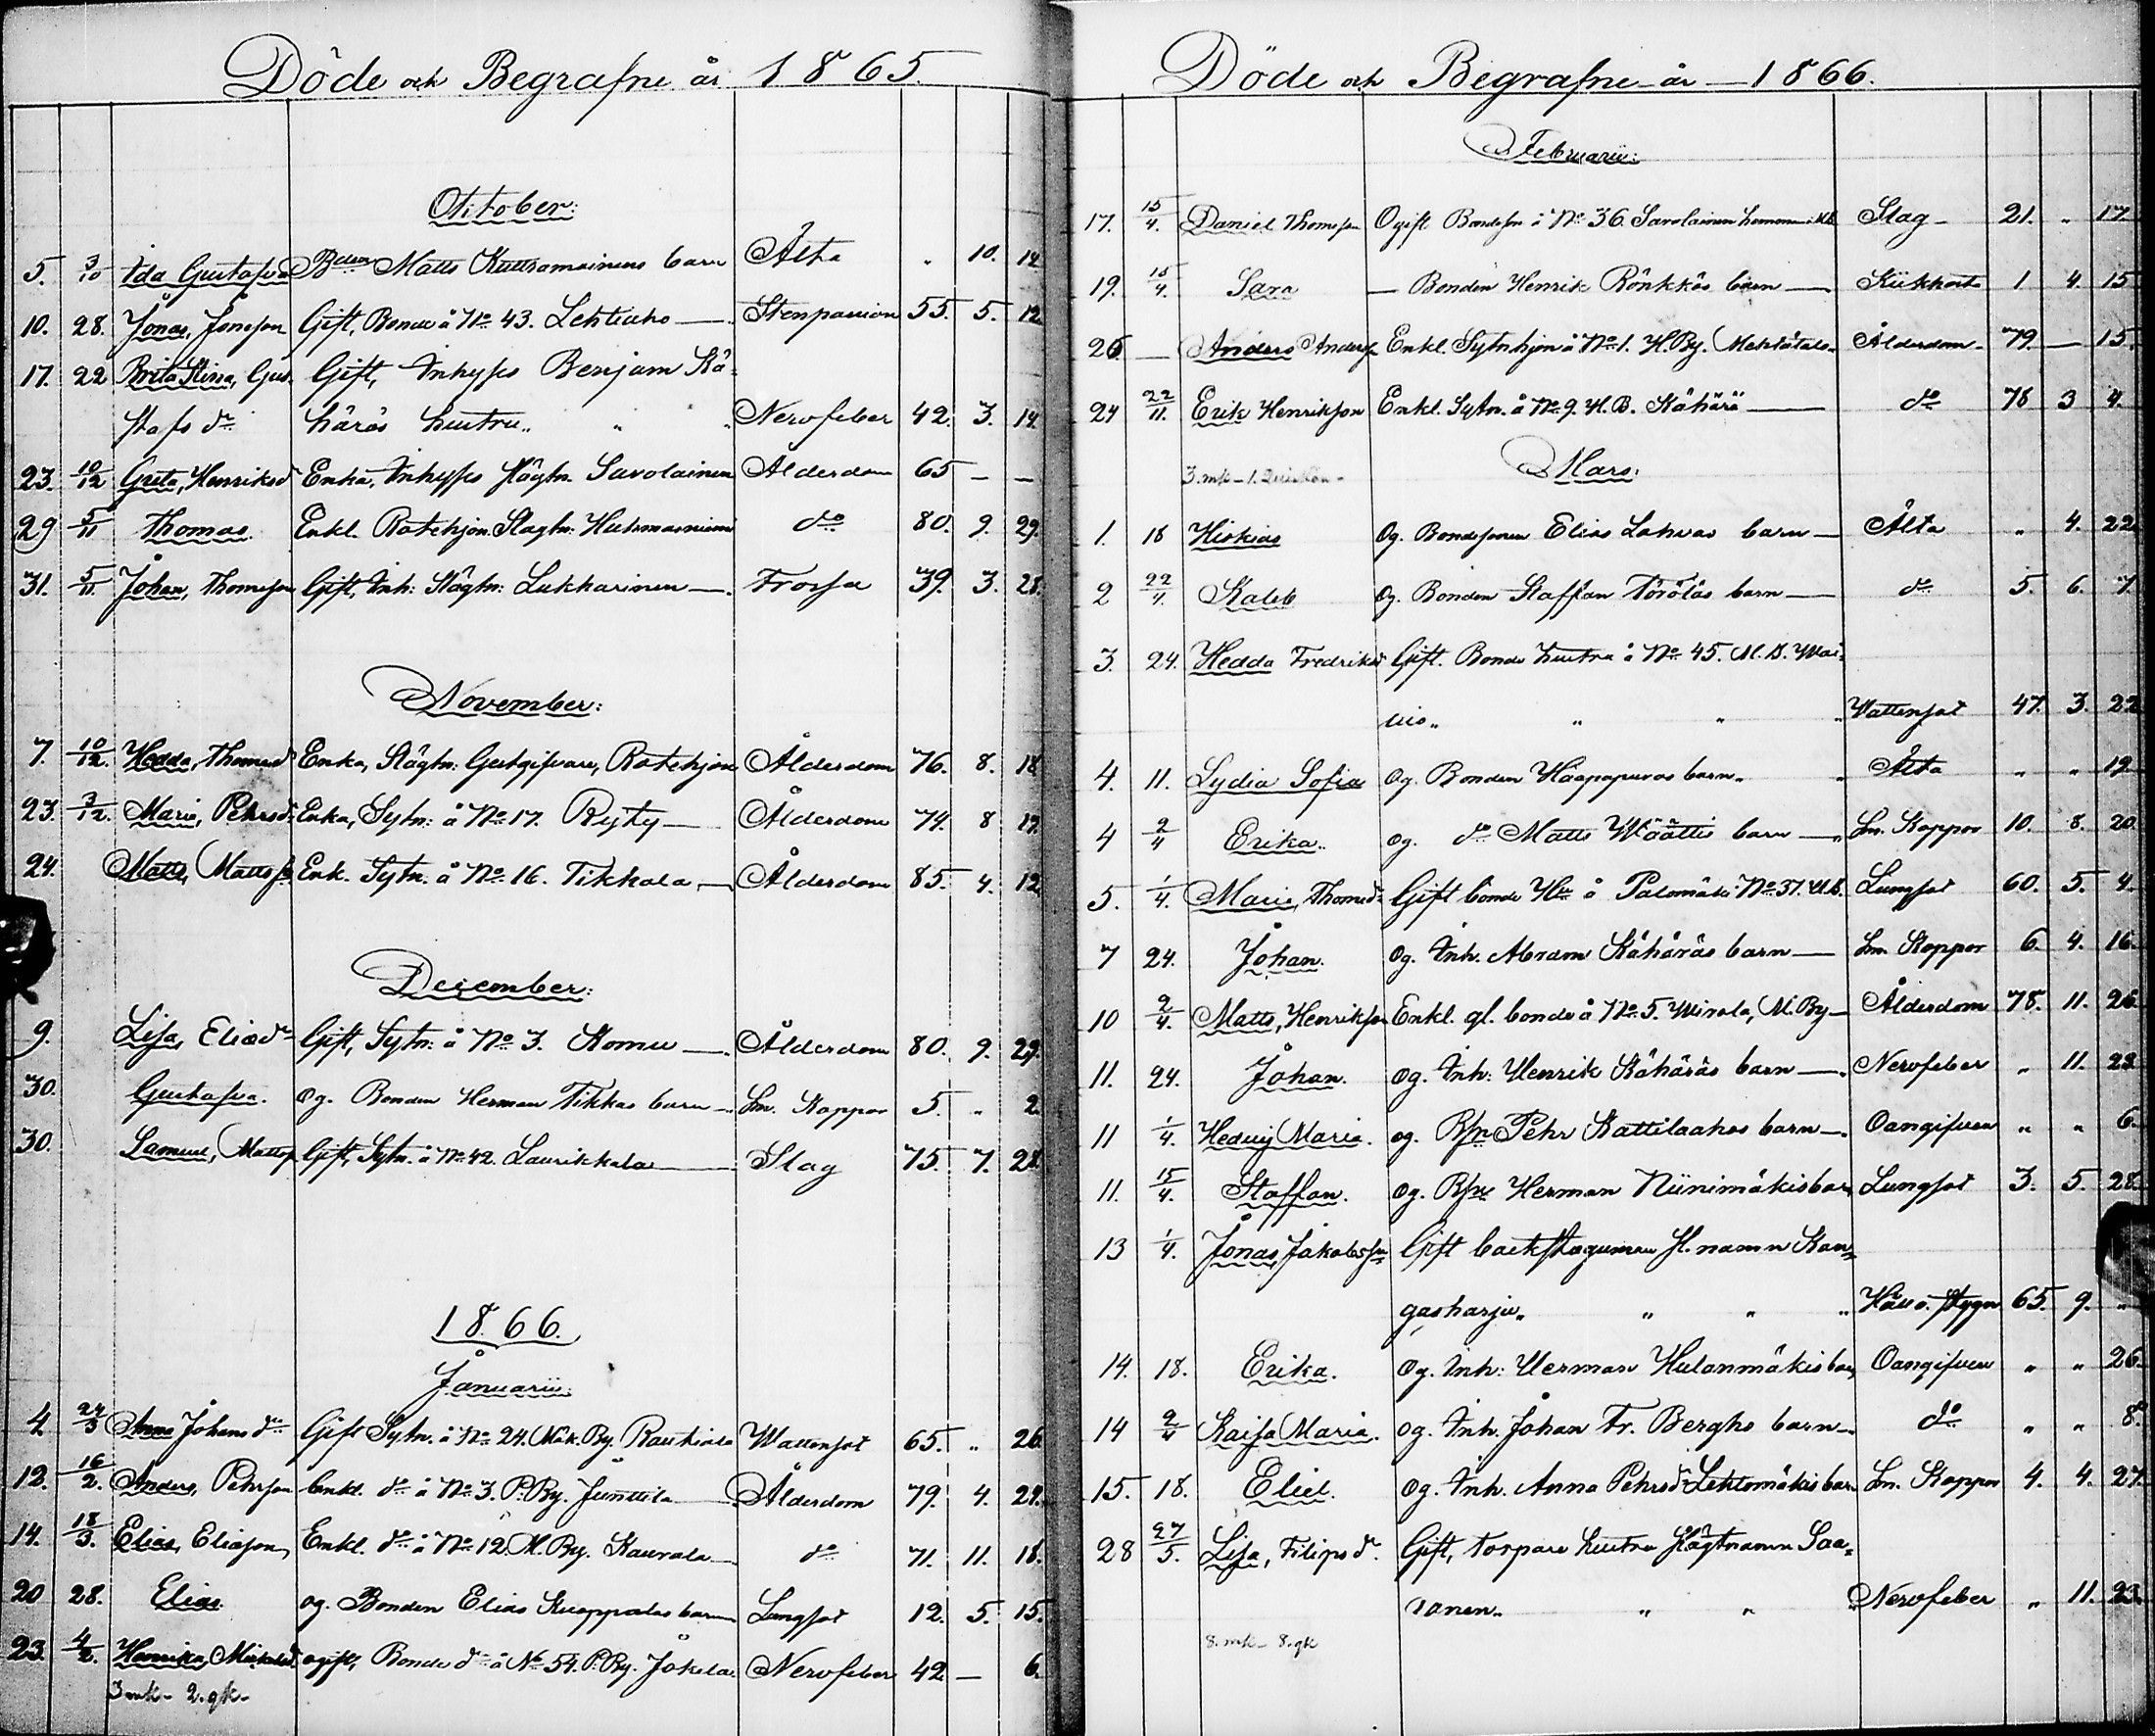 Döde och Begrafne år 1865.
October:
5. 3/10 Ida Gustafva Bden Matts Kuttramoinens barn Ålta " 10. 14
10. 28. Jonas, Jonsson Gift, Bonde å No 43. Lehtiaho — Stenpassion 55. 5. 12
17. 22 Brita Stina, Gus- Gift, Inhyses Benjam Kä-
stafs dr häräs hustru " " Nervfeber 42. 3. 14.
23. 10/12 Greta, Henriksd Enka, Inhyses slägtn. Savolainen Ålderdom 65 — —
29 5/11 Thomas. Enkl. Rotehjon Slagtn: do 80. 9. 29.
31. 5/11 Johan, Thomeson Gift, Inh: Slägtn: Lukkarinen —. Frossa 39. 3. 28.
November:
7. 10/12. Hedda, Thomasd Enka, Slägtn: Gestgifvare, Rotehjon Ålderdom 76. 8. 18
23. 3/12. Maria, Pehrsd: Enka, Sytn: å No 17. Ryty — Ålderdom 74. 8 19.
24. Matts, Mattss Enk. Sytn. å No 16. Tikkala — Ålderdom 85. 4. 12
December:
9. Lisa, Eliædr Gift, Sytn: å No 3. Komu —. Ålderdom 80. 9. 29.
30. Gustafva. Og. Bonden Herman Tikkas barn — Sm. Koppor 5. " 2
30. Samuel, Mattss Gift, Sytn. å No 42. Laurikkala — Slag 75. 7. 28.
1866.
Januarii:
4 24/3 Anna Johans dr Gift Sytn. å No 24. Mäk. By. Rautiola Wattensot 65. " 26.
12. 16/2. Anders, Pehrson Enkl. do å No 3. P. By. Junttila — Ålderdom 79. 4. 29.
14. 18/3. Elias, Eliæson, Enkl. do å No 12. M. By. Kaurala — do 71. 11. 18.
20 28. Elias og. Bonden Elias Kuoppalas barn Lungsot 12. 5. 15.
23. 4/2. Henrika, Mickelsd ogift, Bonde dr å No 54. P. By. Jokela. Nervfeber 42 — 6.
3 mk - 2. qk -
Döde och Begrafne år — 1866.
Februarii:
17. 15/4. Daniel Thomeson Ogift Bondeson å No 36. Savolainen Slag — 21. " 17
19. 15/4. Sara — Bonden Henrik Rönkkös barn — Kikhosta 1 4. 15
26. — Anders Anderss Enkl. Sytnhjon å No 1. H. By. Mehtätalo. Ålderdom. 79. — 15.
24 22/11. Erik Henrikson Enkl. Sytn. å No 9. H. B. Kähärä — do 78 3 4.
3. mk - 1. Qvinkön -
Mars:
1. 18 Hiskias Og. Bondesonen Elias Lahvas barn — Ålta " 4. 22
2 22/4. Kaleb Og. Bonden Staffan Törölas barn — do 5. 6. 7.
3. 24. Hedda Fredriksd Gift. Bonde hustru å No 45. M. B. Wai-
nio " " " Wattensot 47. 3. 22
4. 11. Lydia Sofia Og. Bonden Haapapuros barn " Ålta " " 19.
4 2/4 Erika. og. do Matts Wäättis barn — Sm. Koppor 10. 8. 20
5. 1/4. Maria, Thomsdr Gift bonde Hu å Palomäki No 37. M.B. Lungsot 60. 5. 4.
7 24. Johan. Og. Inh. Abram Kähäräs barn — Sm. Koppor 6. 4. 16.
10 2/4. Matts, Henrikson Enkl. gl. bonde å No 5. Wirola, M. By — Ålderdom 78. 11. 26.
11. 24. Johan. Og. Inh: Henrik Kähäräs barn —. Nervfeber " 11. 23.
11 1/4. Hedvig Maria. og. Pehr Kattilaahos barn —. Oangifven " " 6.
11. 15/4. Staffan. og. Herman Niinimäkis barn Lungsot 3. 5. 28.
13 1/4. Jonas, Jakobsson Gift backstuguman sl. namn Kan-
gasharju " " " Håll o. stygn 65. 9. "
14. 18. Erika. Og. Inh: Herman Hulanmäkis barn Oangifven " " 26.
14 2/4 Kaisa Maria. Og. Inh. Johan Fr. Berghs barn — do " " 8.
15. 18. Eliel. Og. Inh. Anna Pehrsdr Lehtomäkis barn Sm. Koppor 4. 4. 27.
28 27/5. Lisa, Filipsdr. Gift, torpare hustru slägtnamn Saa-
ranen " " " Nervfeber " 11. 23.
8. mk - 8. qk